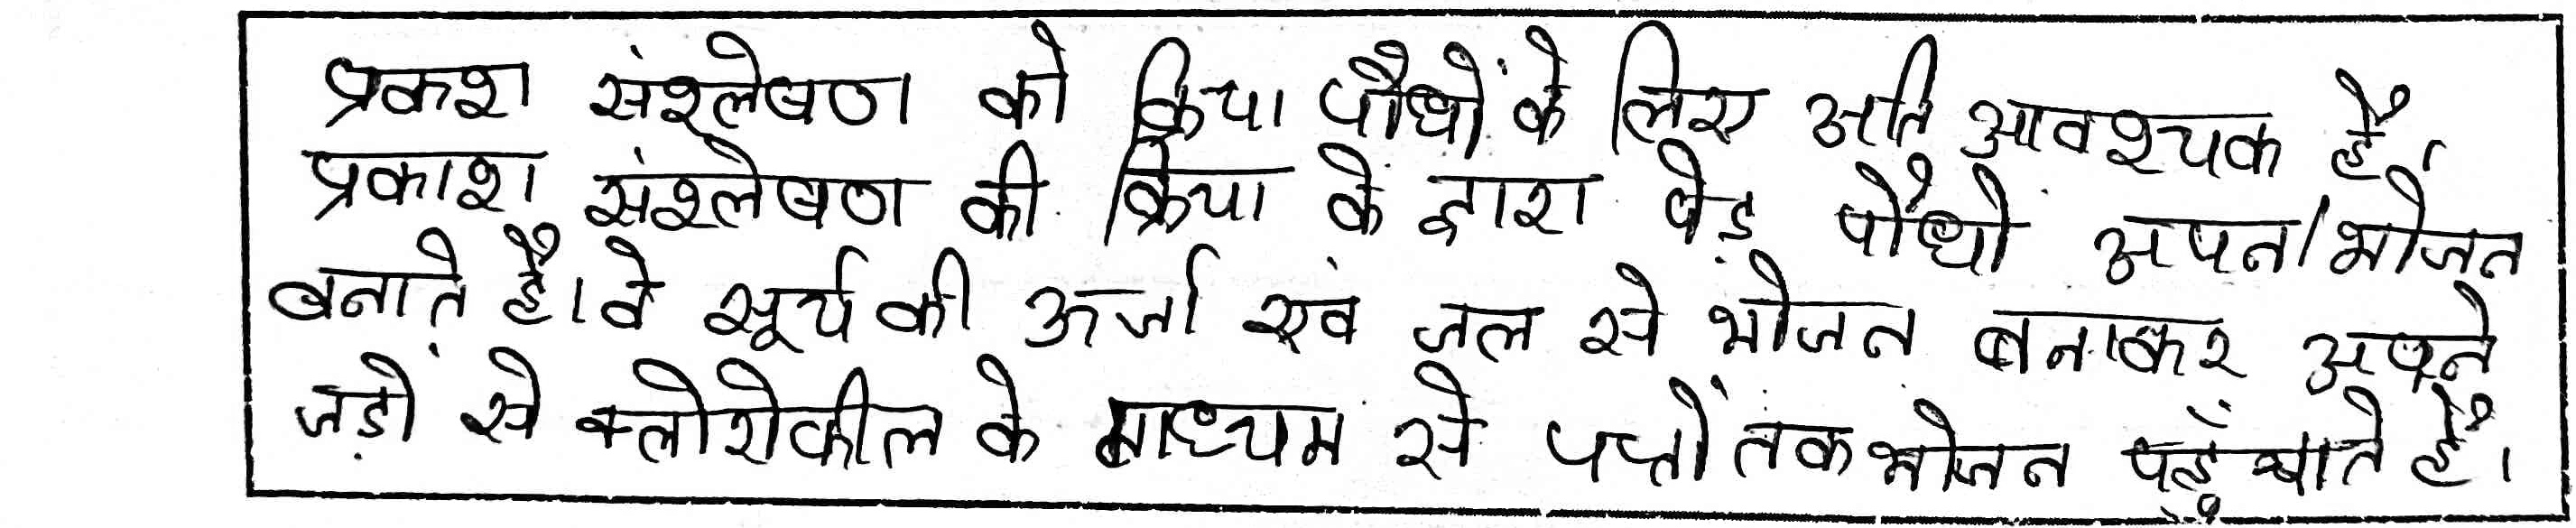 प्रकश संश्लेषण को क्रिया पौधों के लिए अति आवश्यक है।
प्रकाश संश्लेषण की क्रिया के द्वारा पेड़ पौधो अपना भोजन
बनाते है। वे सूर्य की ऊर्जा एवं जल से भोजन बनाकर अपने
जड़ो से क्लोरोफील के माध्यम से पत्तों तक भोजन पहुँचाते है।